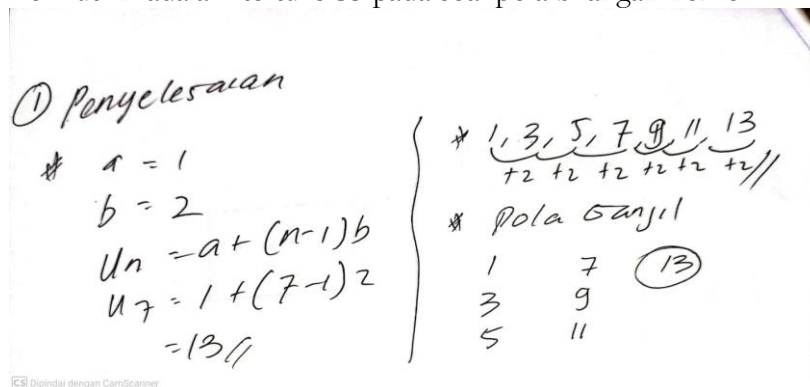 ① Penyelesaian
* a = 1
b = 2
Un = a + (n-1)b
U7 = 1 + (7-1)2
= 13 //
* 1, 3, 5, 7, 9, 11, 13
+2 +2 +2 +2 +2 +2 //
* Pola Ganjil
1 7 13
3 9
5 11
CS Dipindai dengan CamScanner